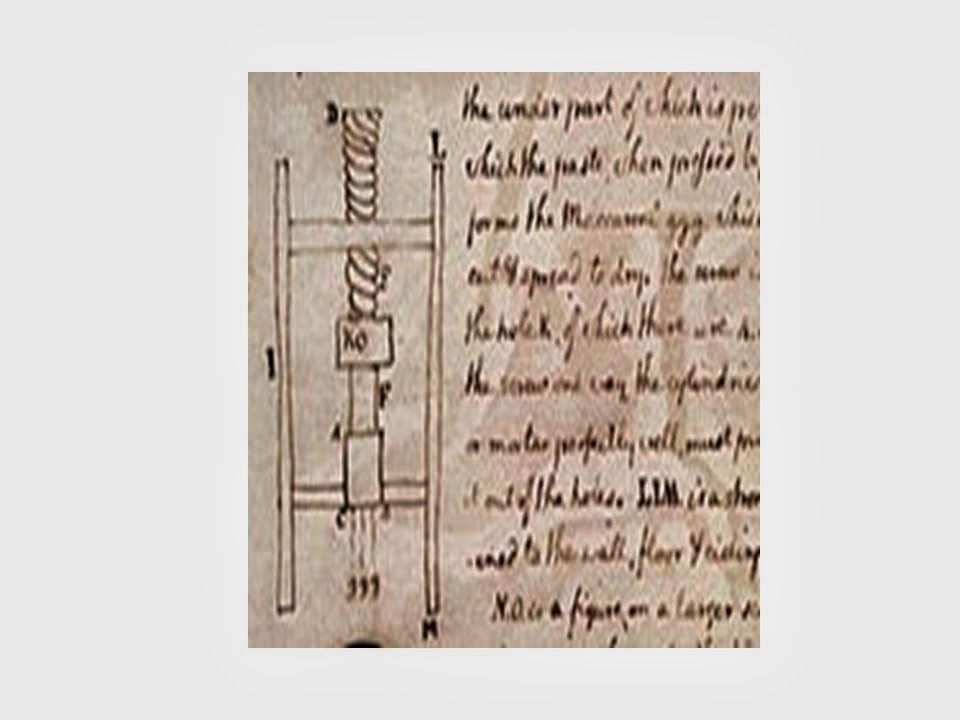 D
L
I
KO
F
A
C
ggg
M
the under part of which is
which the paste, when pressed
forms the Maccaroni ggg which
out & spread to dry. The screw
the holes K, of which there are
the screw one way, the cylindrical
a mortar perfectly well, must
it out of the holes. L.I.M. is a
to the wall, floor & ceiling
N.O. is a figure, on a larger